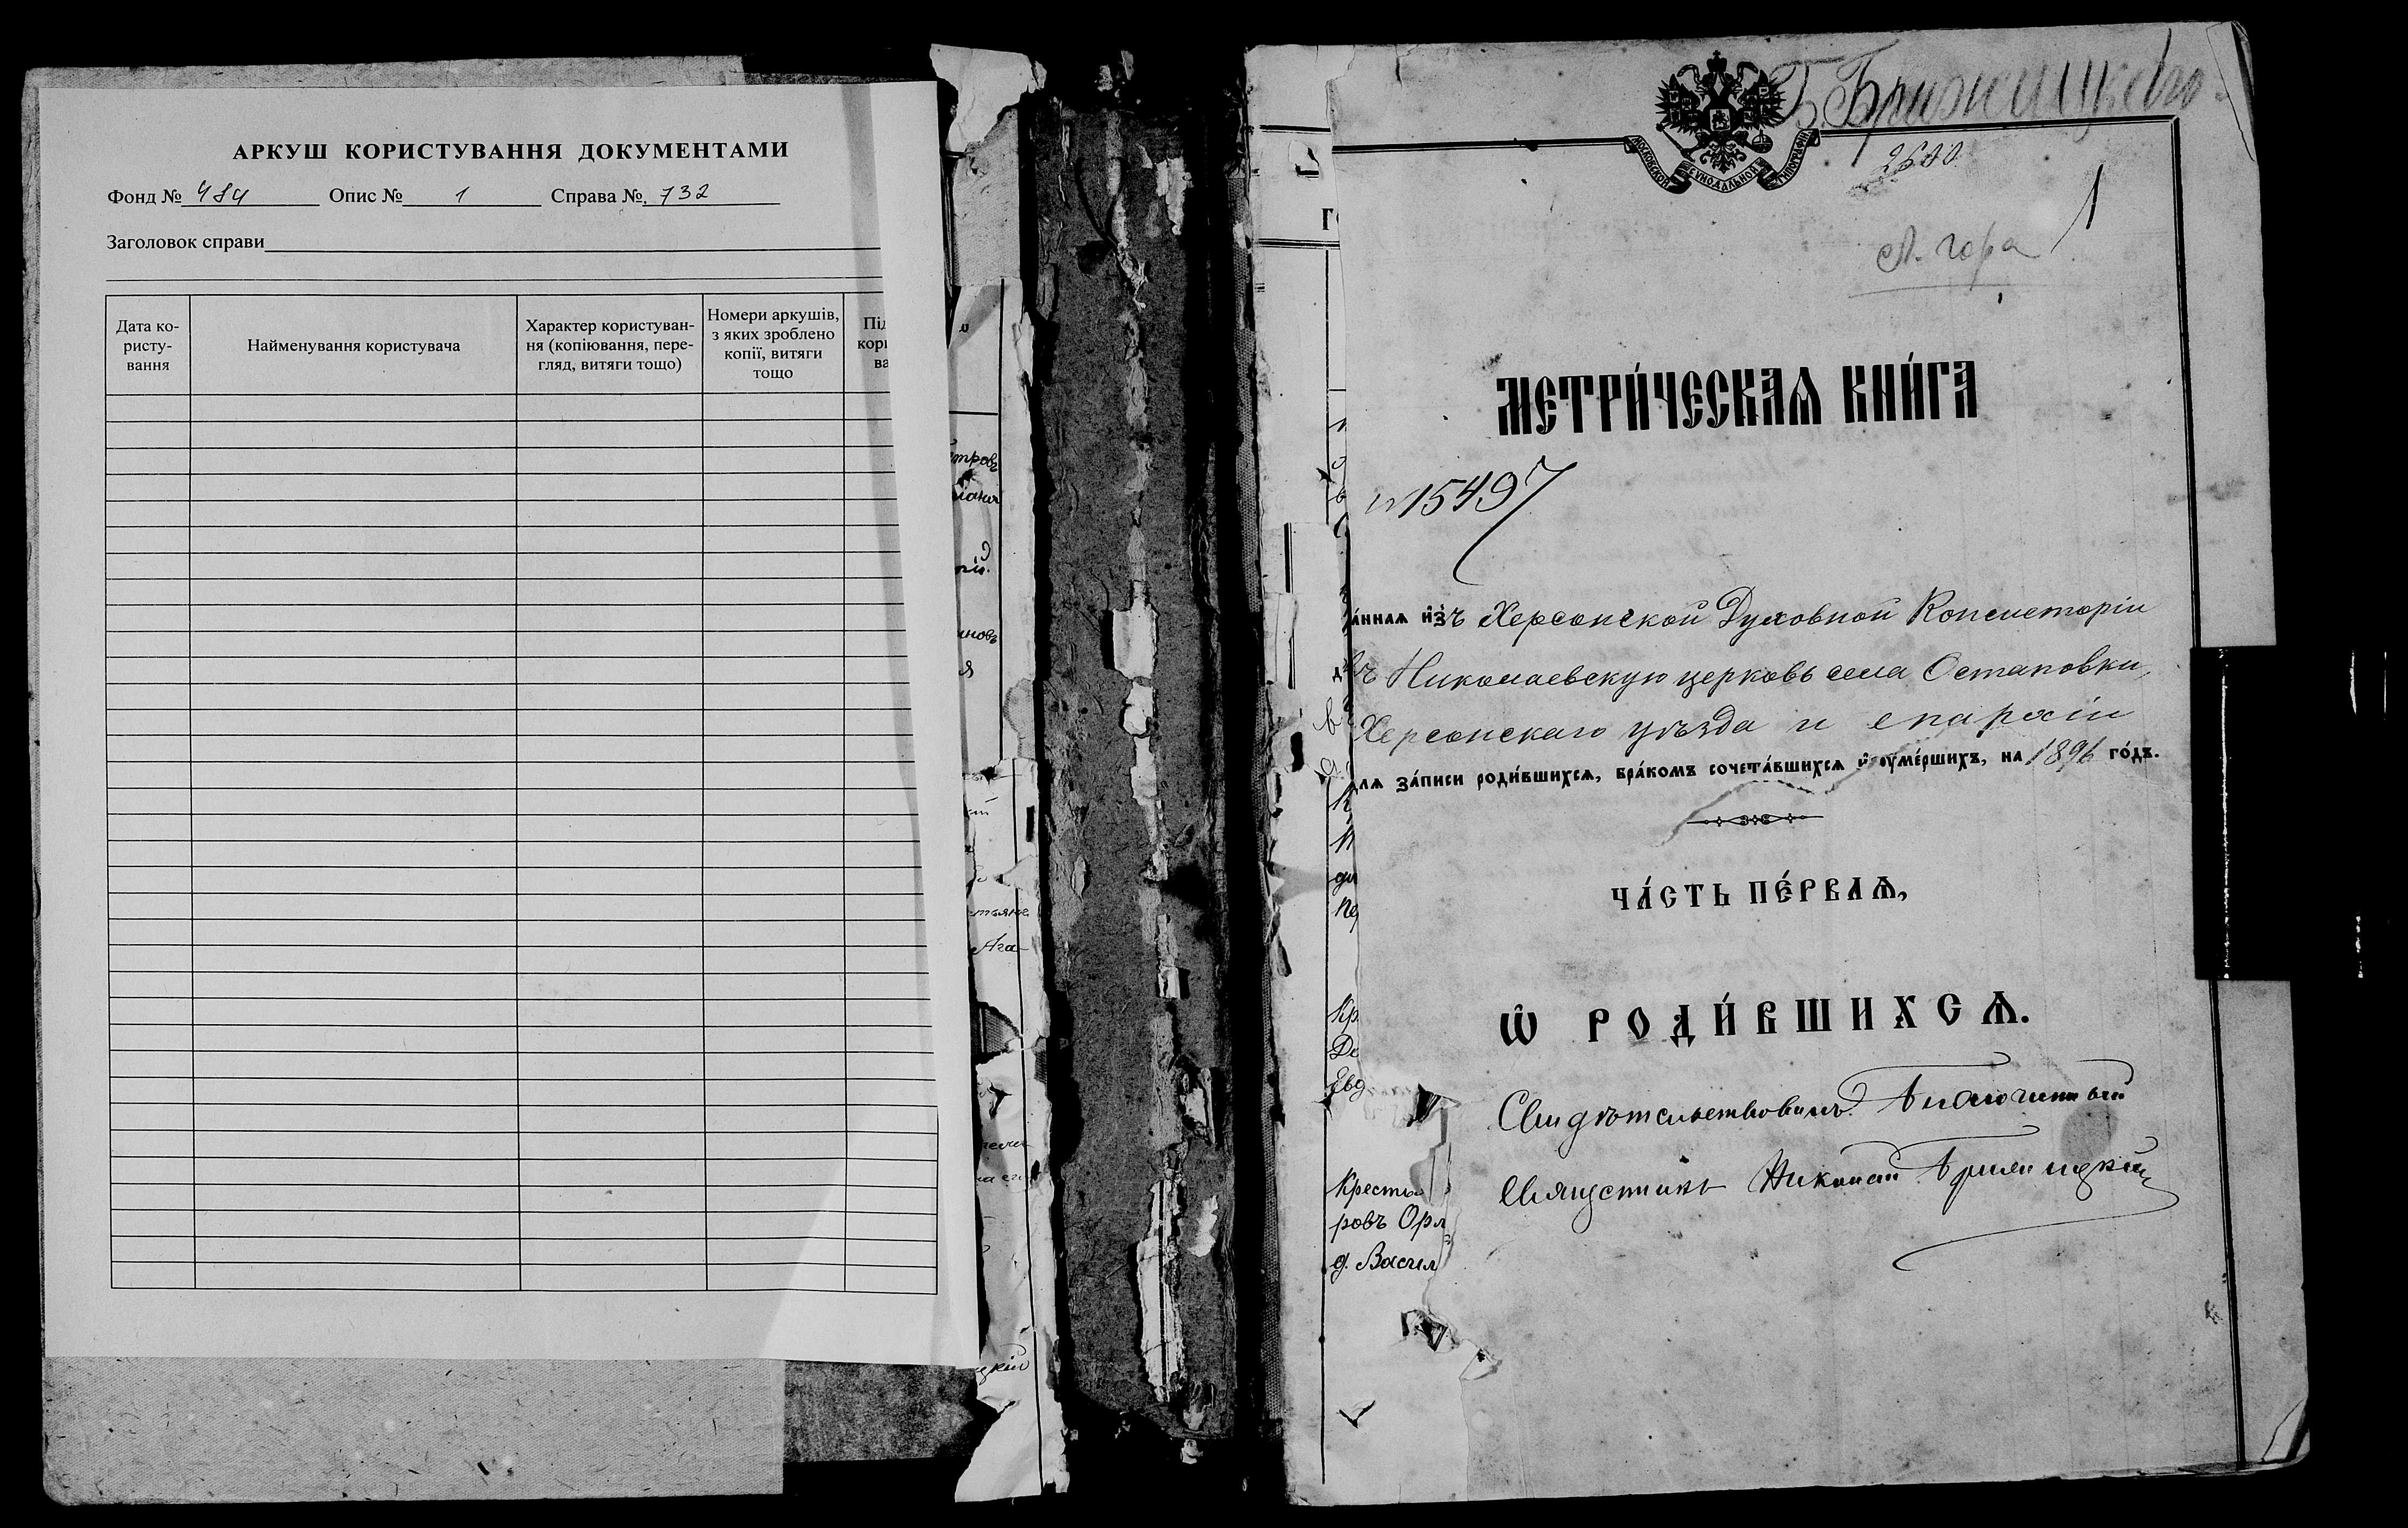 АРКУШ КОРИСТУВАННЯ ДОКУМЕНТАМИ
Фонд № 484 Опис № 1 Справа № 732
Заголовок справи
Дата ко-
ристу-
вання
Найменування користувача
Характер користуван-
ня (копіювання, пере-
гляд, витяги тощо)
Номери аркушів,
з яких зроблено
копії, витяги
тощо
Під
кори
ва
МОСКОВСКОЙ СѴНОДАЛЬНОЙ ТИПОГРАФІИ
2600
1
Л. гора
МЕТРИ́ЧЕСКАѦ КНИ́ГА
№ 15497
а́ннаѧ и҆зъ Херсонской Духовной Консисторіи
въ Николаевскую церковь села Остаповки,
Херсонскаго уѣзда и епархіи
длѧ за́писи роди́вшихсѧ, бра́комъ сочета́вшихсѧ и҆ ᲂуме́ршихъ, на 1896 го́дъ.
ЧА́СТЬ ПЕ́РВАѦ,
Ѡ҆ РОДИ́ВШИХСѦ.
Свидѣтельствовалъ Благочинный
Священникъ Николай Бржицкій
Кр
Де
Евд
Крестья
ровъ Орл
д. Васил
тровъ
иновъ
Ага